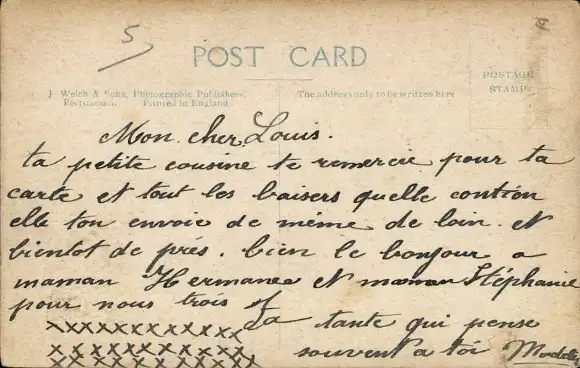 5
POST CARD
POSTAGE
STAMP
J. Welch & Sons, Photographic Publishers,
Portsmouth. Printed in England
The address only to be written here
Mon cher Louis.
ta petite cousine te remercie pour ta
carte et tout les baisers quelle contien
elle ton envoie de même de loin. et
bientot de près. bien le bonjour a
maman Hermance et maman Stéphanie
pour nous trois
ta tante qui pense
souvent a toi
xxxxxxxxxxxx
xxxxxxxxxxxx
xxxxxxxxxxxx